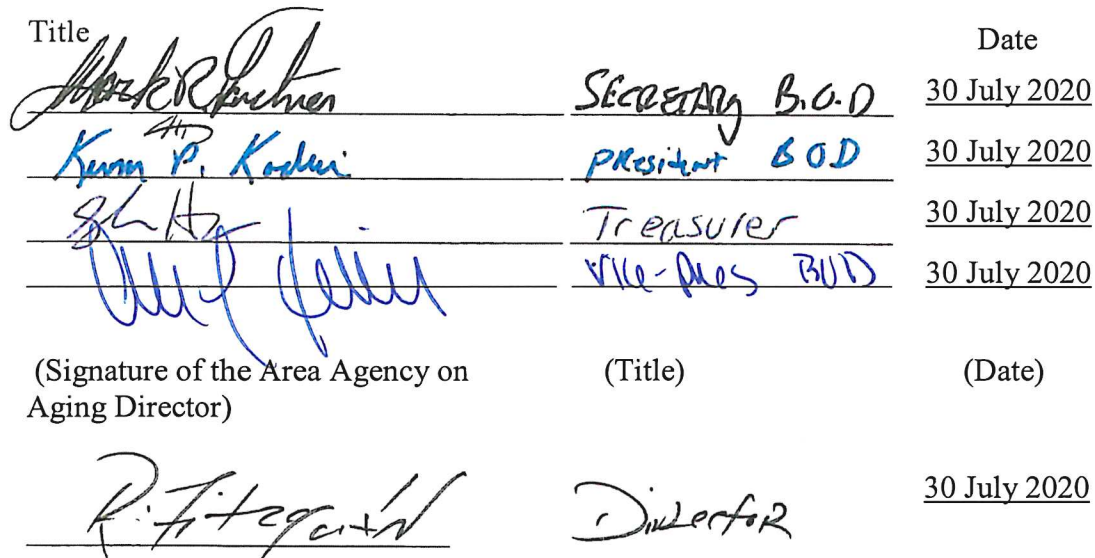 Title Date
SECRETARY B.O.D 30 July 2020
P. President BOD 30 July 2020
Treasurer 30 July 2020
Vice-Pres BOD 30 July 2020
(Signature of the Area Agency on (Title) (Date)
Aging Director)
R. Fitzgerald Director 30 July 2020